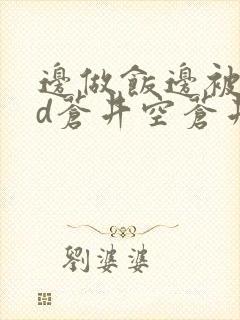 邊做飯邊被
d蒼井空蒼井
劉婆婆